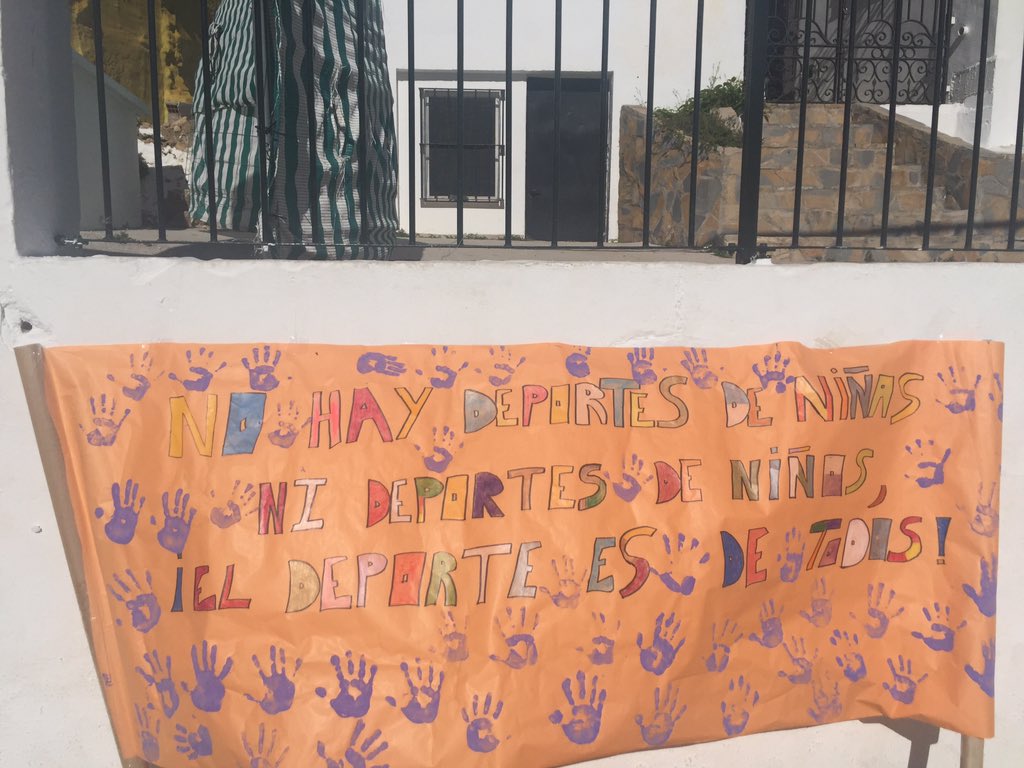 NO HAY DEPORTES DE NIÑAS
NI DEPORTES DE NIÑOS,
¡EL DEPORTE ES DE TODOS!